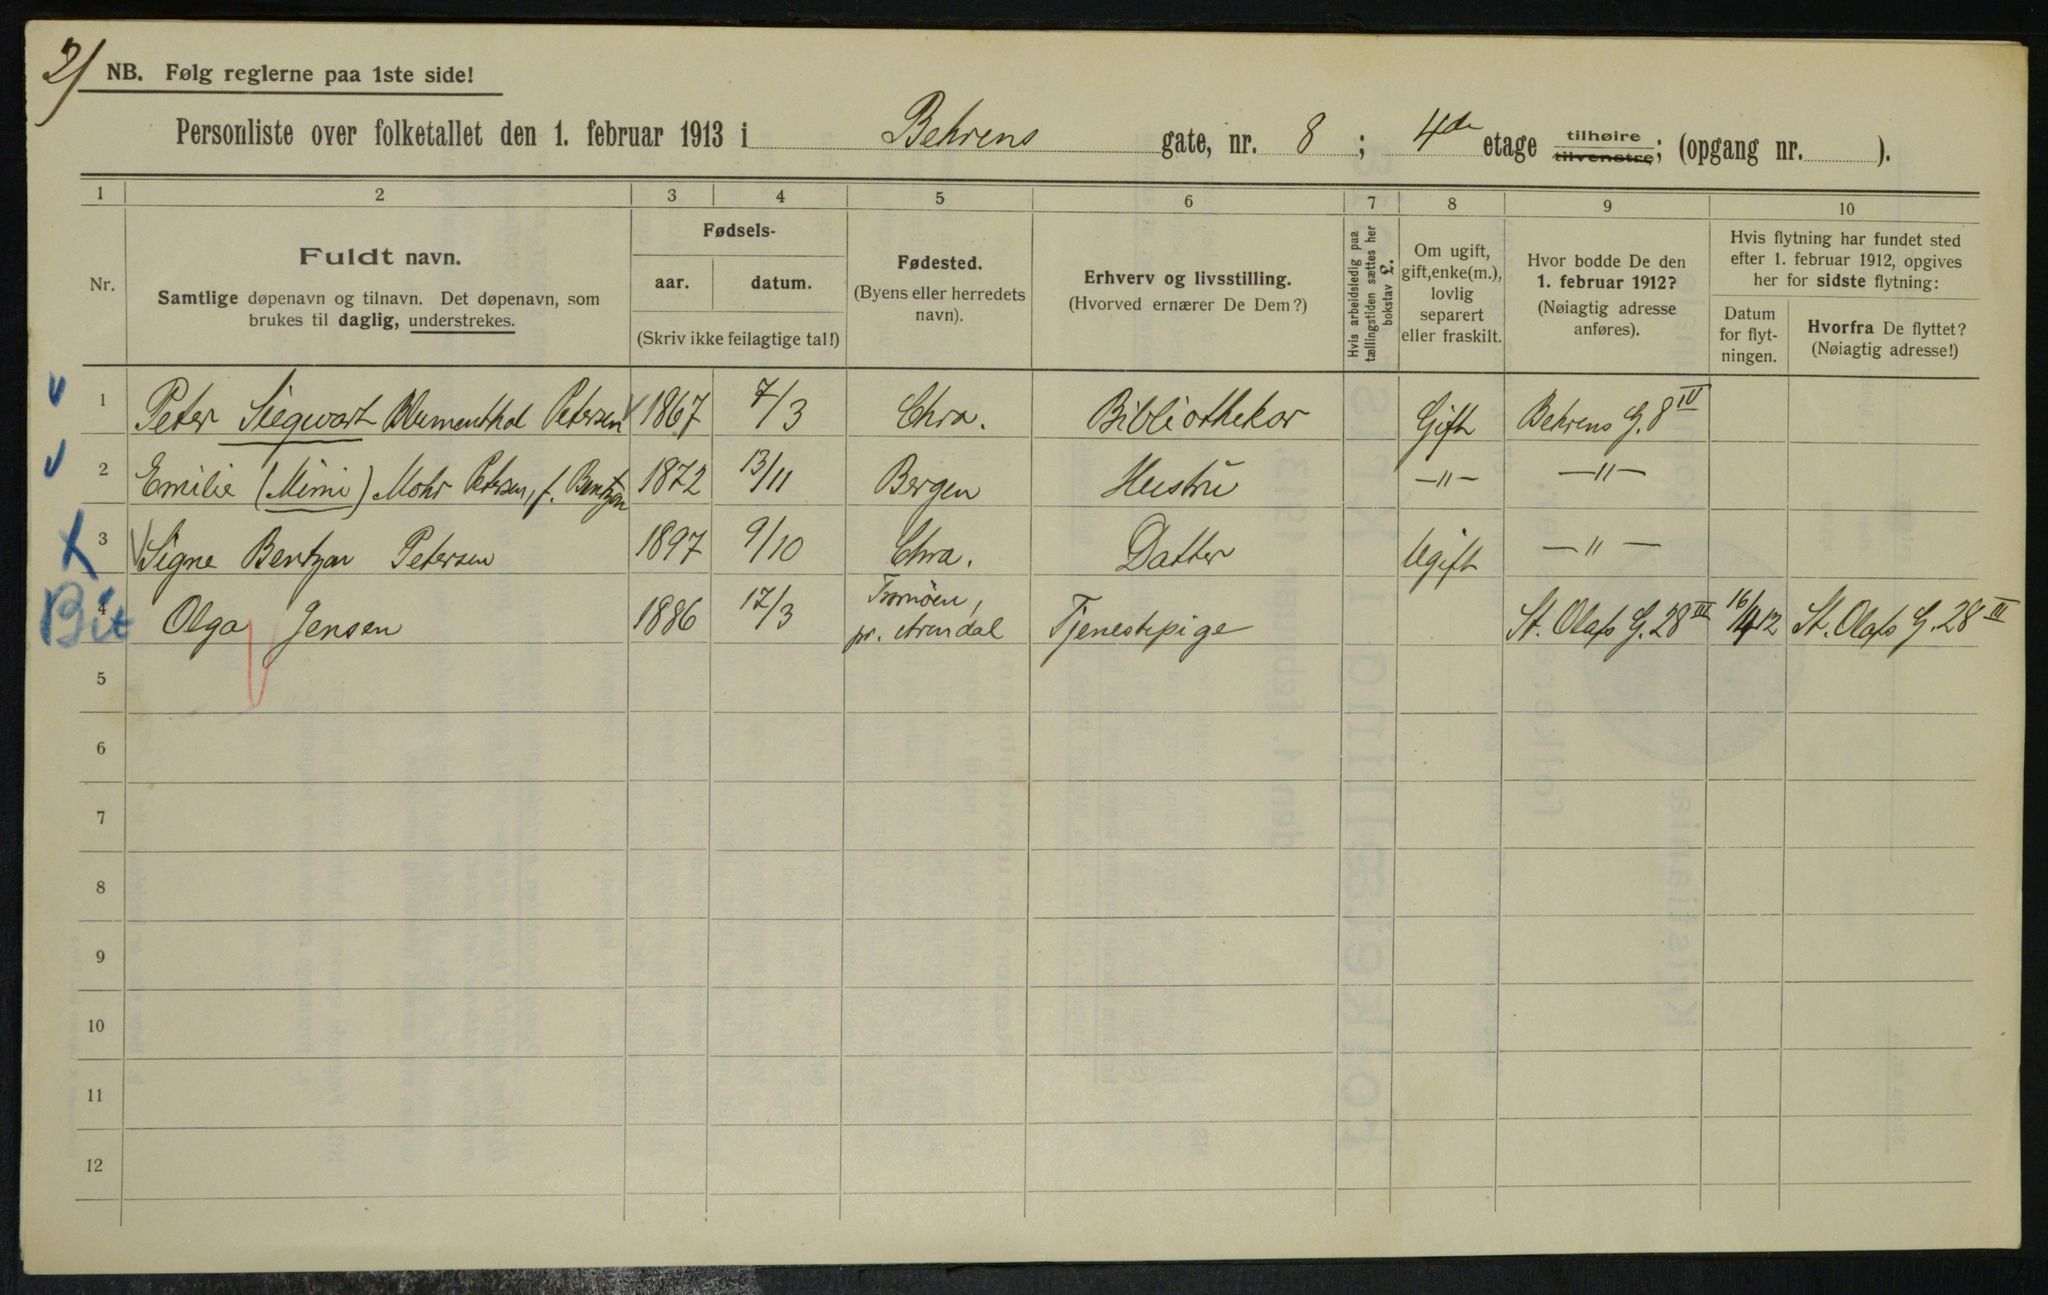 2/ NB. Følg reglerne paa 1ste side!
Personliste over folketallet den 1. februar 1913 i Behrens gate, nr. 8 ; 4de etage tilhøire tilvenstre; (opgang nr. ).
1 2 3 4 5 6 7 8 9 10
Nr.
Fuldt navn.
Samtlige døpenavn og tilnavn. Det døpenavn, som
brukes til daglig, understrekes.
Fødsels-
aar. datum.
(Skriv ikke feilagtige tal!)
Fødested.
(Byens eller herredets
navn).
Erhverv og livsstilling.
(Hvorved ernærer De Dem?)
Hvis arbeidsledig paa
tællingstiden sættes her
bokstav £.
Om ugift,
gift, enke(m.),
lovlig
separert
eller fraskilt.
Hvor bodde De den
1. februar 1912?
(Nøiagtig adresse
anføres).
Hvis flytning har fundet sted
efter 1. februar 1912, opgives
her for sidste flytning:
Datum
for flyt-
ningen.
Hvorfra De flyttet?
(Nøiagtig adresse!)
1 Peter Siegwart Blumenthal Petersen 1867 7/3 Chra. Bibliothekar Gift Behrens G. 8 IV
2 Emilie (Mimi) Mohr Petersen, f. Bentzon 1872 13/11 Bergen Hustru —"— —"—
3 Signe Bentzon Petersen 1897 9/10 Chra. Datter Ugift —"—
Bit 4 Olga Jensen 1886 17/3 Tromøen, pr. Arendal Tjenestepige St. Olafs G. 28 III 16/4 12 St. Olafs G. 28 III
5
6
7
8
9
10
11
12